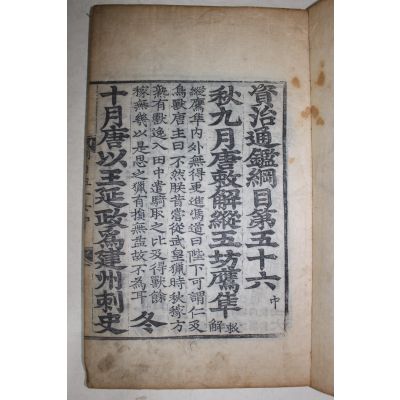 資治通鑑綱目第五十六 中
秋九月唐敕解縱五坊鷹隼 敕解
縱鷹隼內外無得更進馮道曰陛下可謂仁及
鳥獸唐主曰不然朕昔嘗從武皇獵時秋稼方
熟有獸逸入田中遣騎取之比及得獸餘
稼無幾以是思之獵有損無益故不為耳 冬
十月唐以王延政為建州刺史